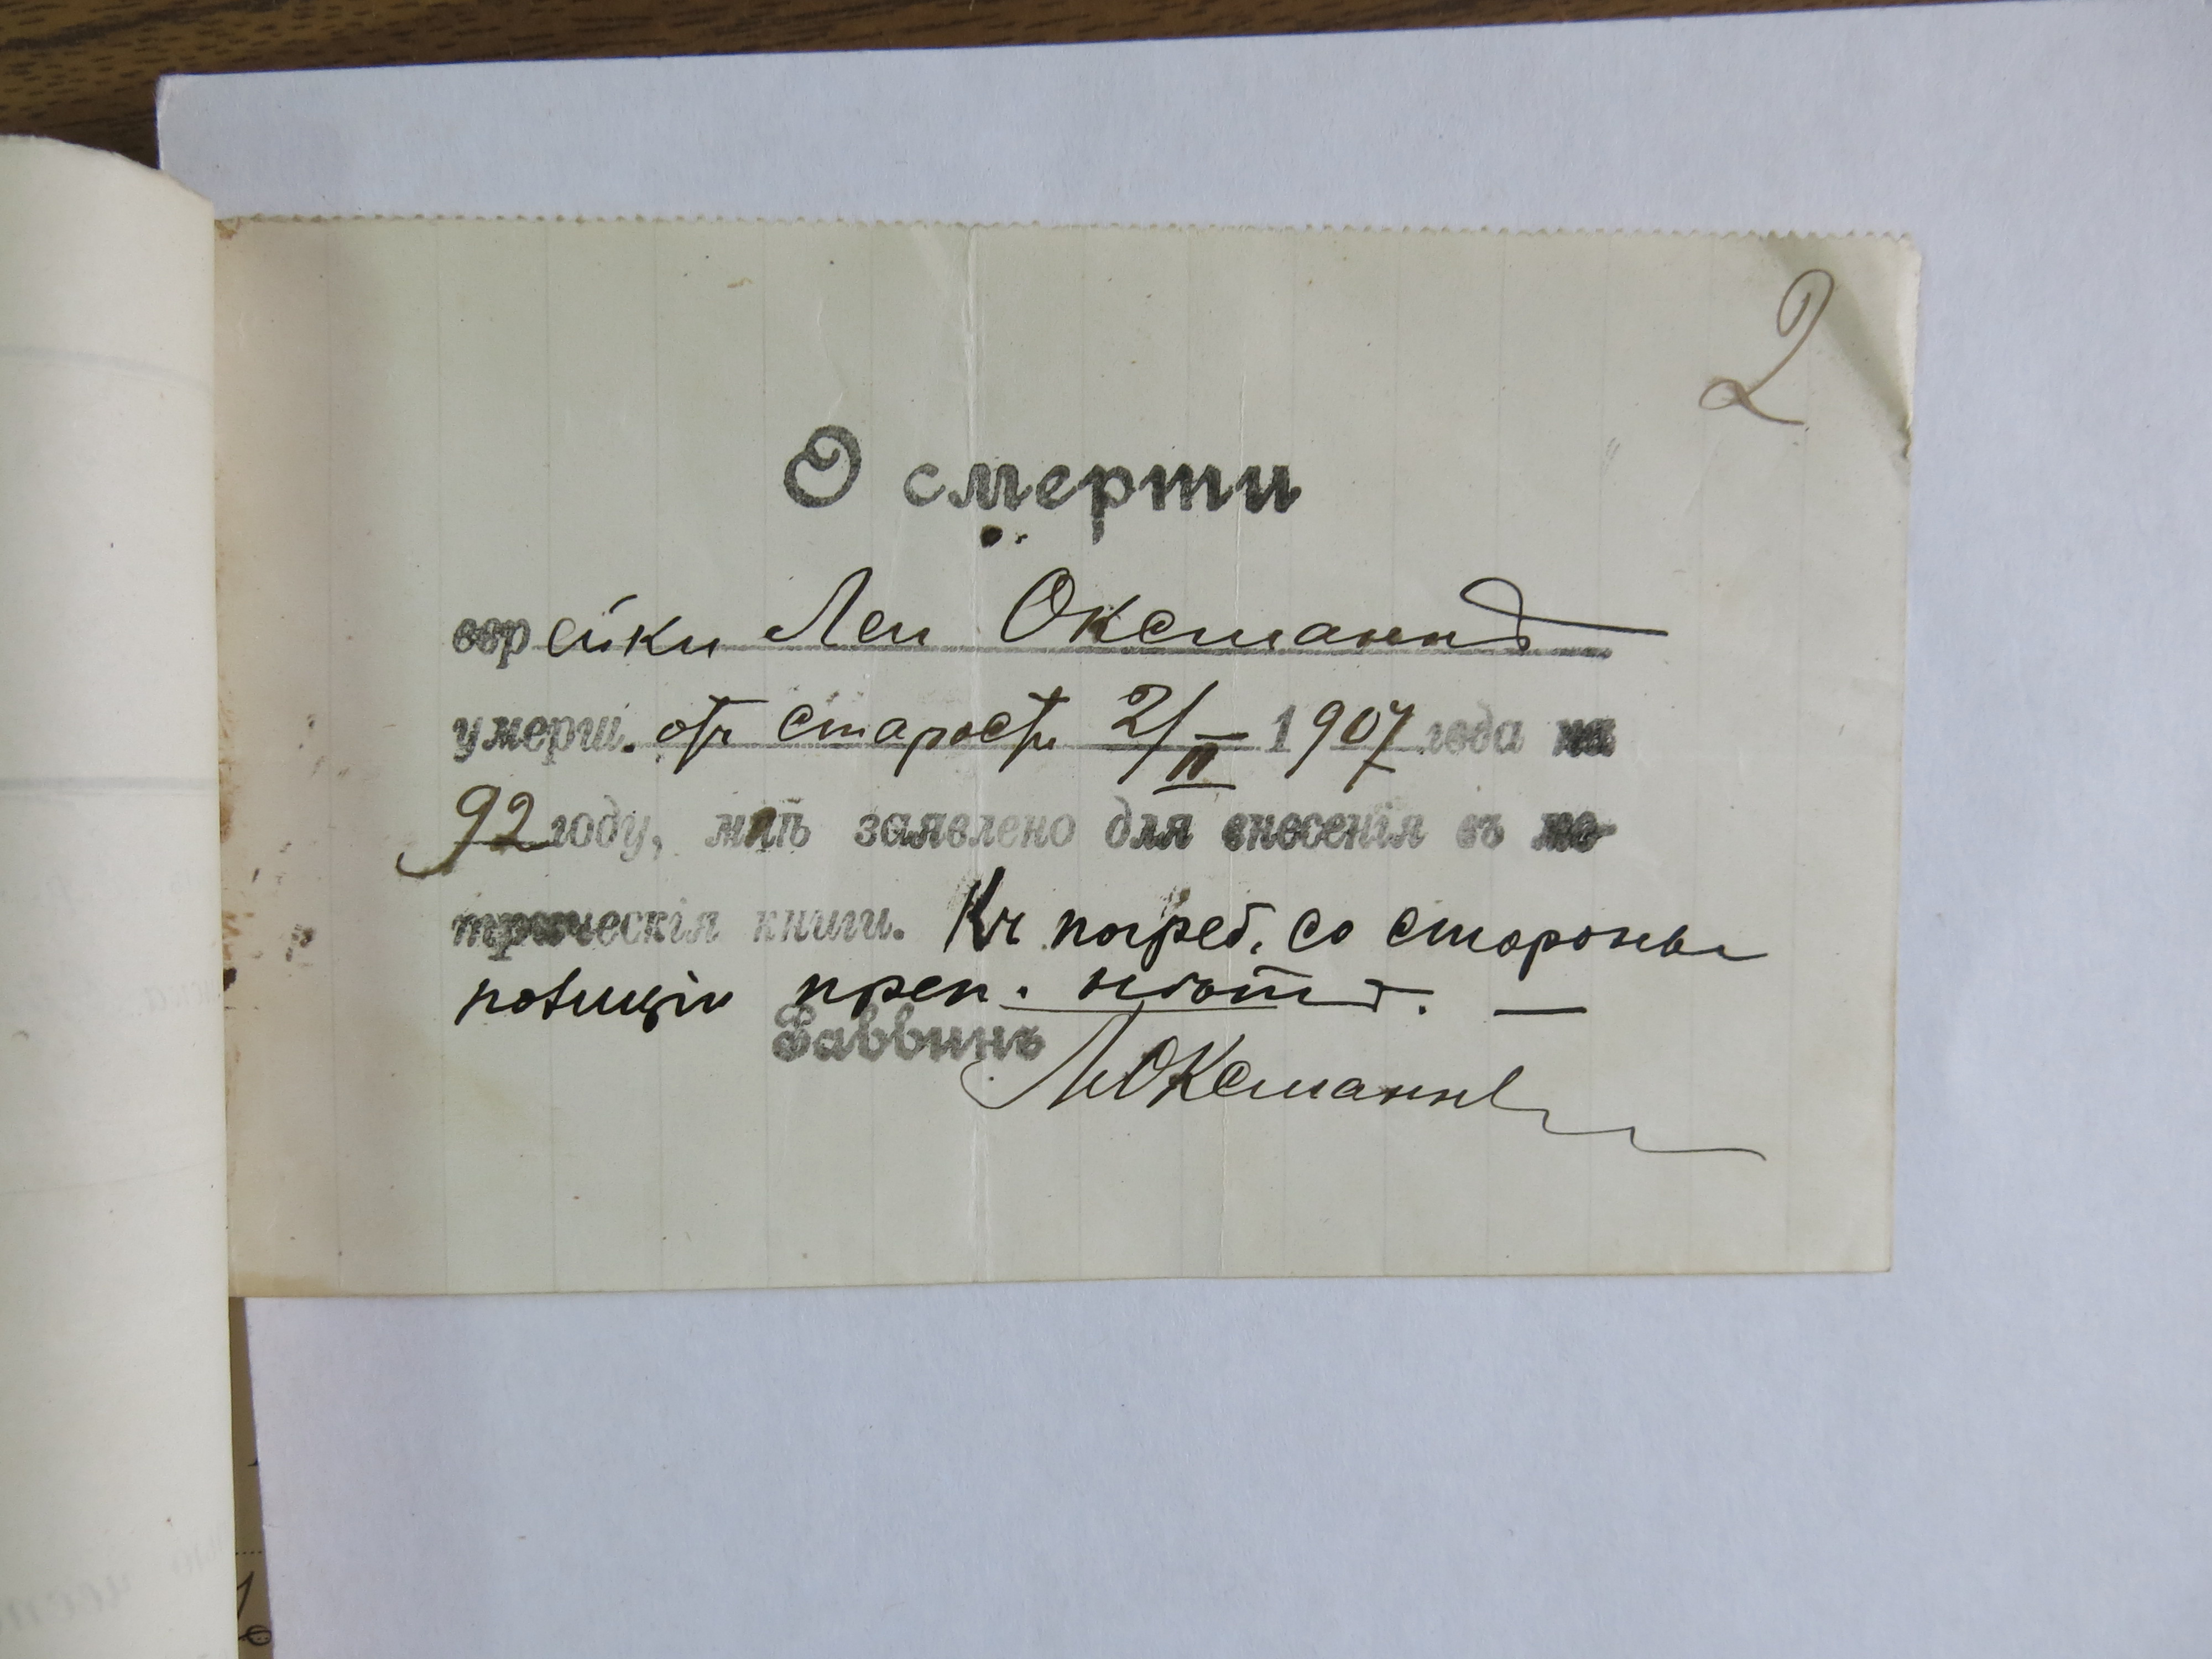 2
О смерти
еврейки Леи Оксманъ
умерш. отъ старости 2/II 1907 года на
92 году, мнѣ заявлено для внесенія въ ме-
трическія книги. Къ погреб. со стороны
полиціи преп. нѣтъ. —
Раввинъ
Оксманъ